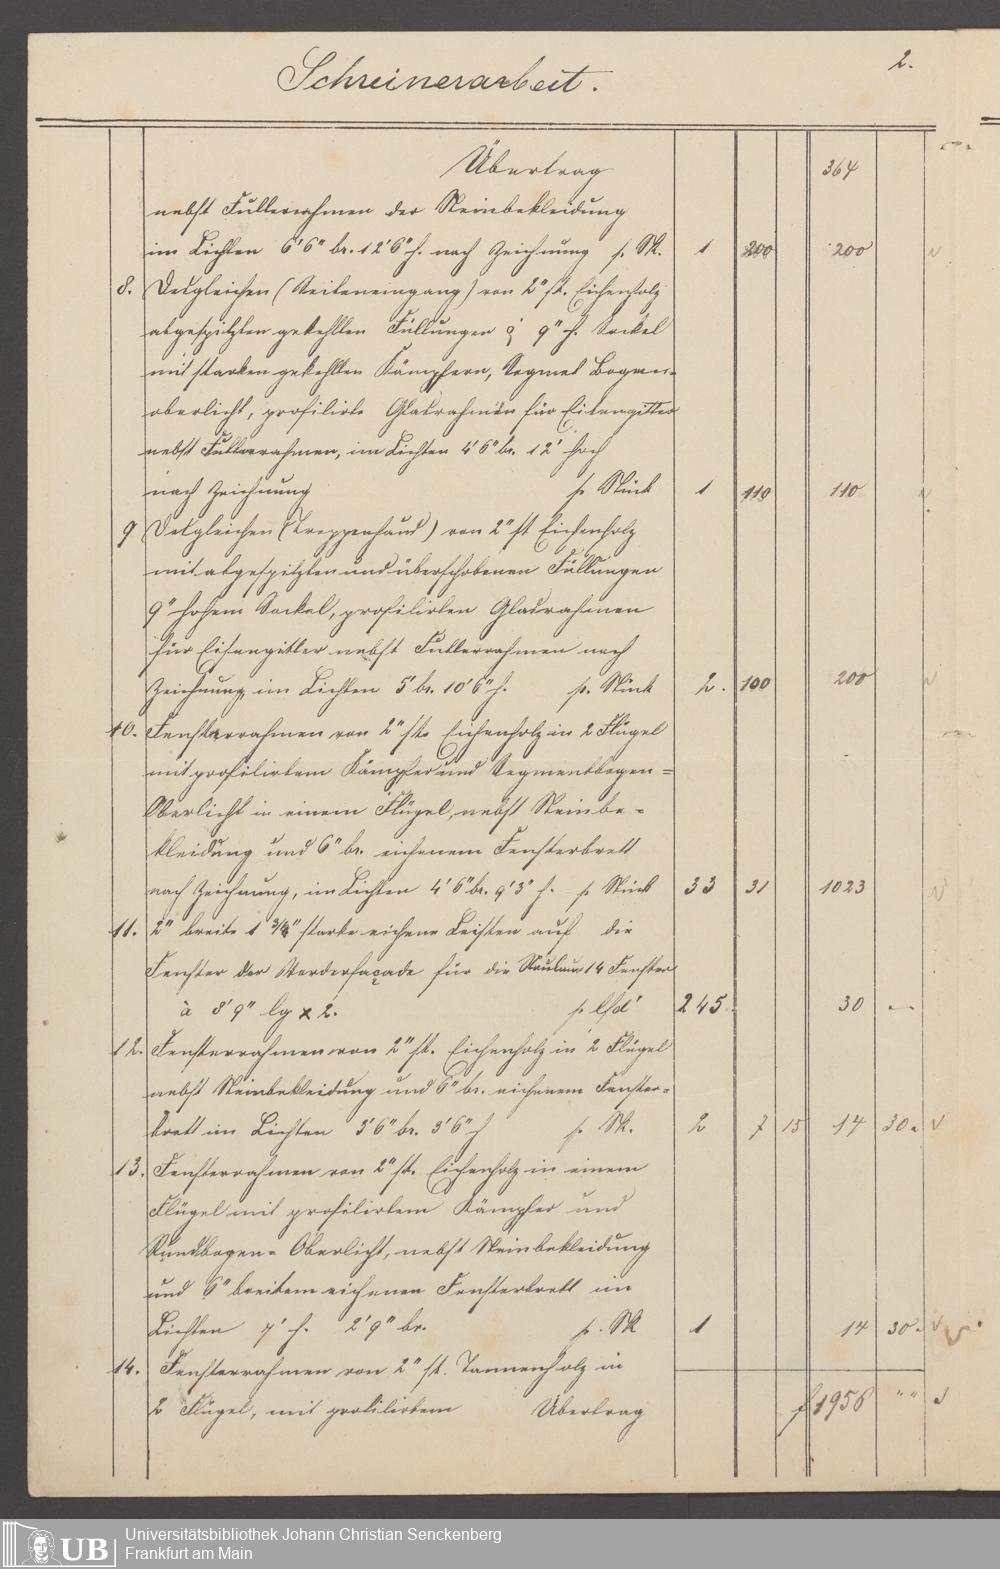 2.
Schreinerarbeit.
Übertrag 364
nebst Futterrahmen der Steinbekleidung
im Lichten 6'6" br. 12'6" h. nach Zeichnung p. Stk. 1 200 200
8. Desgleichen (Seiteneingang) von 2" st. Eichenholz
abgespitzten gekehlten Füllungen 9" h. Sockel
mit starken gekehlten Kämpfern, Segmet Bogen-
oberlicht, profilirte Glasrahmen für Eisengitter
nebst Futterrahmen, im Lichten 4'6" br. 12' hoch
nach Zeichnung p Stück 1 110 110
9 Desgleichen (Treppenhaus) von 2" st Eichenholz
mit abgespitzten und überschobenen Füllungen
9" hohem Sockel, profilirten Glasrahmen
für Eisengitter nebst Futterrahmen nach
Zeichnung, im Lichten 5' br. 10'6" h. p. Stück 2. 100 200
10. Fensterrahmen von 2" st. Eichenholz in 2 Flügel
mit profilirtem Kämpfer und Segmentbogen=
Oberlicht in einem Flügel, nebst Steinbe-
kleidung und 6" br. eichenem Fensterbrett
nach Zeichnung, im Lichten 4'6" br. 9'3" h. p Stück 33 31 1023
11. 2" breite 1 3/4" starke eichene Leisten auf die
Fenster der Vorderfaçade für die 14 Fenster
à 8'9" lg x 2. p. lfd' 245 30 —
12. Fensterrahmen von 2" st. Eichenholz in 2 Flügel
nebst Steinbekleidung und 6" br. eichenem Fenster=
brett im Lichten 3'6" br. 3'6" h p. Stk. 2 7 15 14 30
13. Fensterrahmen von 2" st. Eichenholz in einem
Flügel mit profilirtem Kämpfer und
Rundbogen= Oberlicht, nebst Steinbekleidung
und 6" breitem eichenen Fensterbrett im
Lichten 7' h. 2'9" br. p. Stk 1 14 30
14. Fensterrahmen von 2" st. Tannenholz in
2 Flügel, mit profilirtem Übertrag f 1956 " "
UB Universitätsbibliothek Johann Christian Senckenberg
Frankfurt am Main